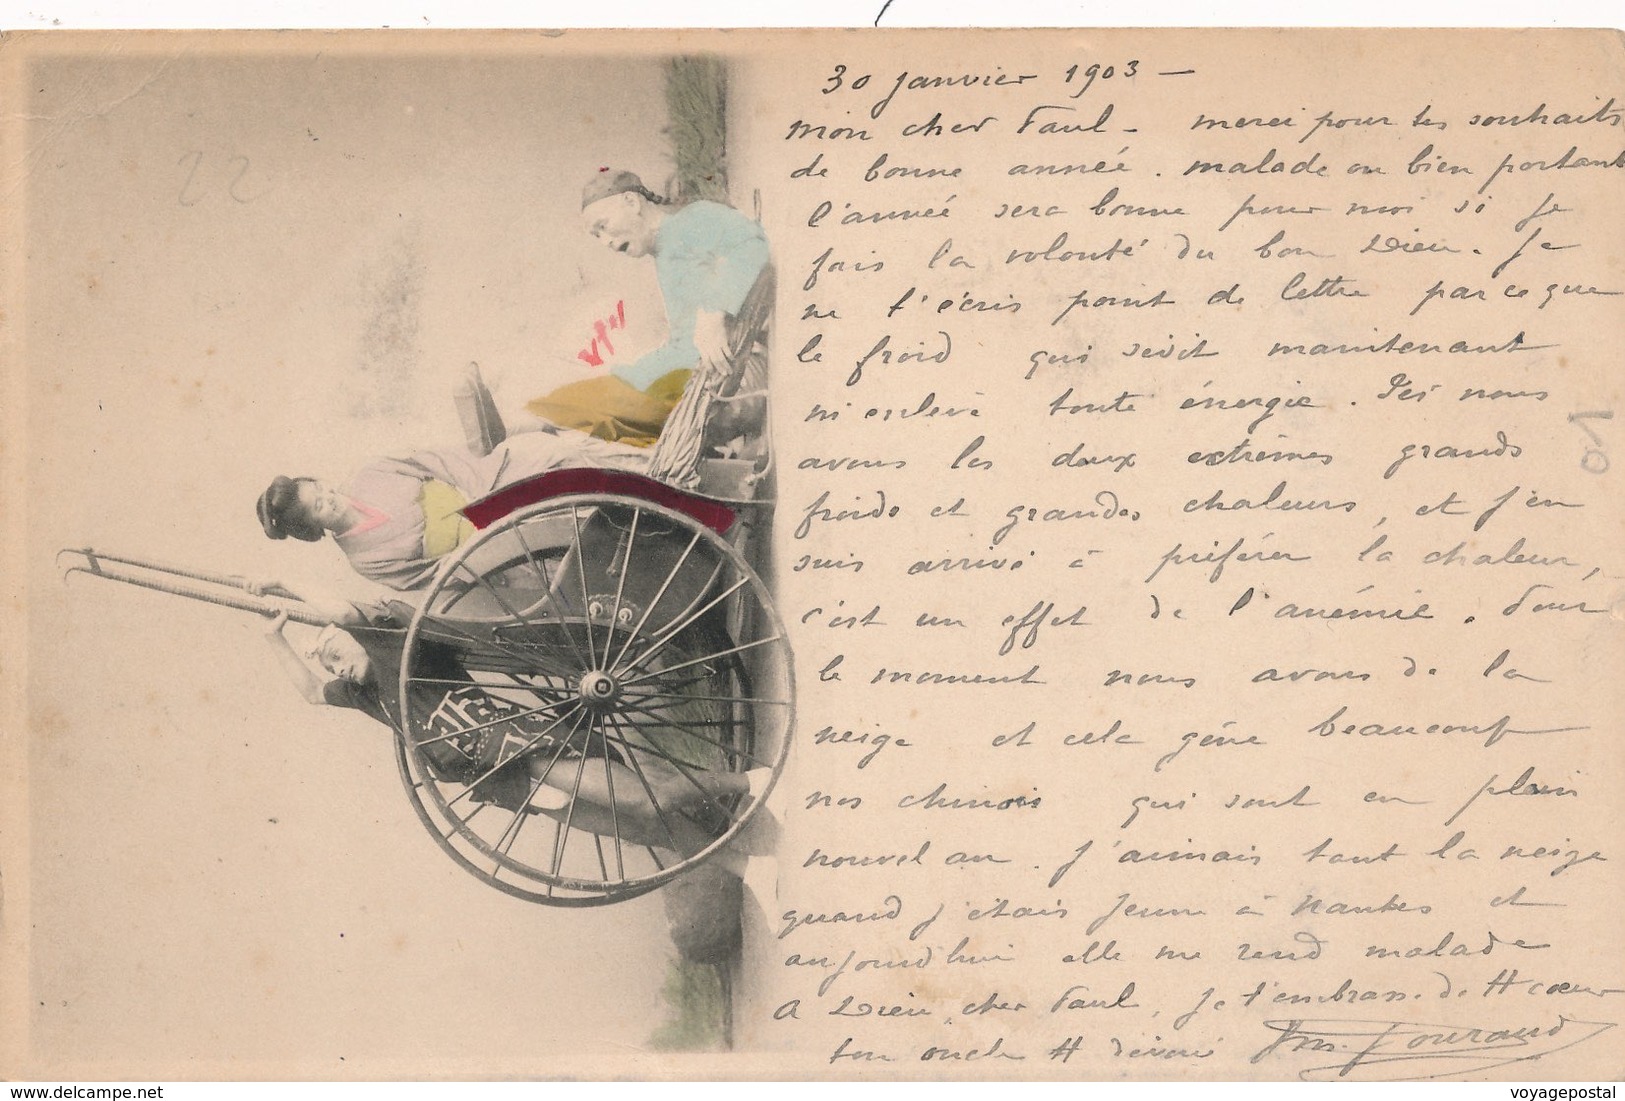 30 janvier 1903 -
mon cher Paul - merci pour tes souhaits
de bonne année . malade ou bien portant
l'année sera bonne pour moi si je
fais la volonté du bon Dieu. Je
ne t'écris point de lettre parce que
le froid qui sévit maintenant
m'enlève toute énergie . Ici nous
avons les deux extrêmes grands
froids et grandes chaleurs, et j'en
suis arrivé à préférer la chaleur,
c'est un effet de l'anémie . Pour
le moment nous avons de la
neige et cela gêne beaucoup
nos chinois qui sont en plein
nouvel an . J'aimais tant la neige
quand j'étais jeune à Nantes et
aujourd'hui elle me rend malade
A Dieu, cher Paul, je t'embrasse de tt cœur
ton oncle tt dévoué
22
10
delcampe.net
voyagepostal